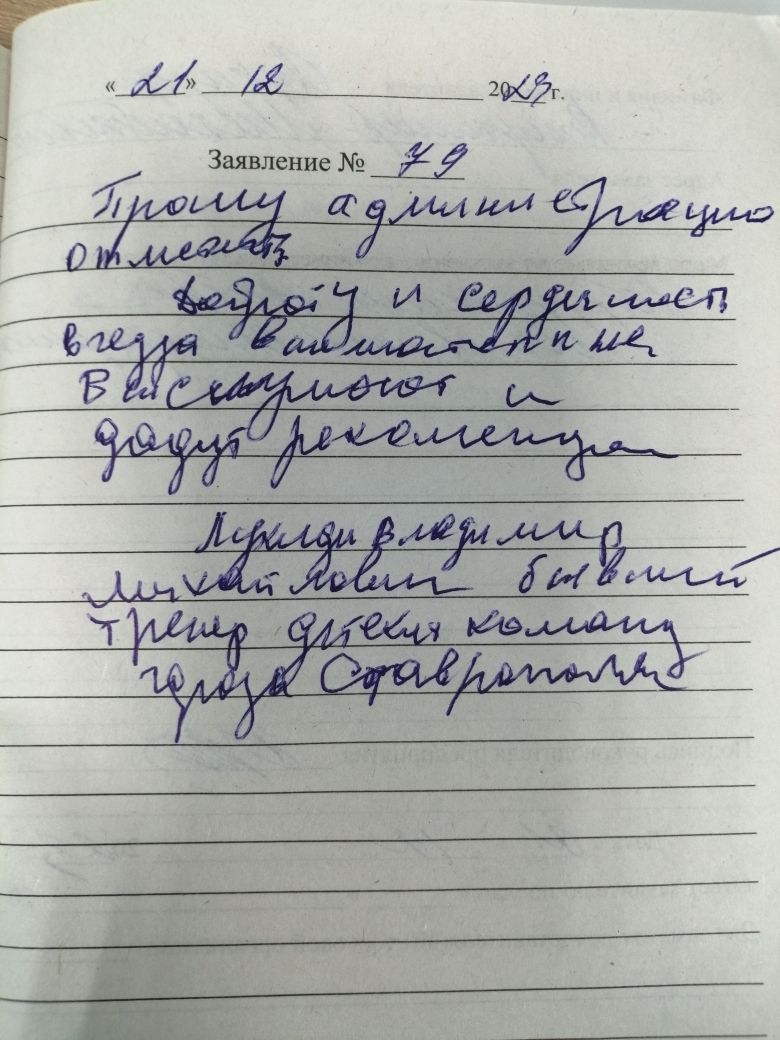 « 21 » 12 2023 г.
Заявление № 79
Прошу администрацию
отметить
доброту и сердечность
всегда внимательные
Выслушают и
дадут рекоменда
Владимир
Михайлович бывший
тренер детских команд
города Ставрополя